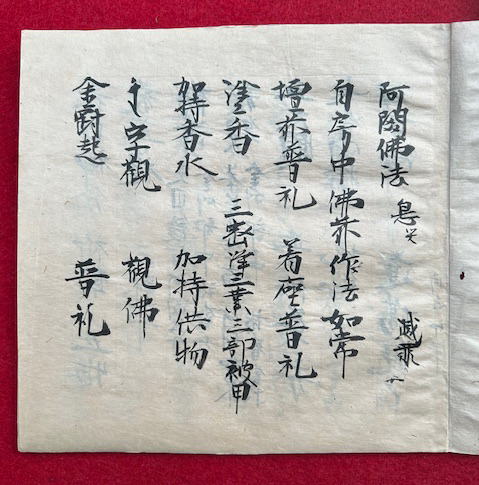 阿閦佛法 息災
自房中佛前作法如常
壇前普礼 着座普礼
塗香 三密淨三業三部被甲
加持香水 加持供物
字觀 觀佛
金剛起 普礼